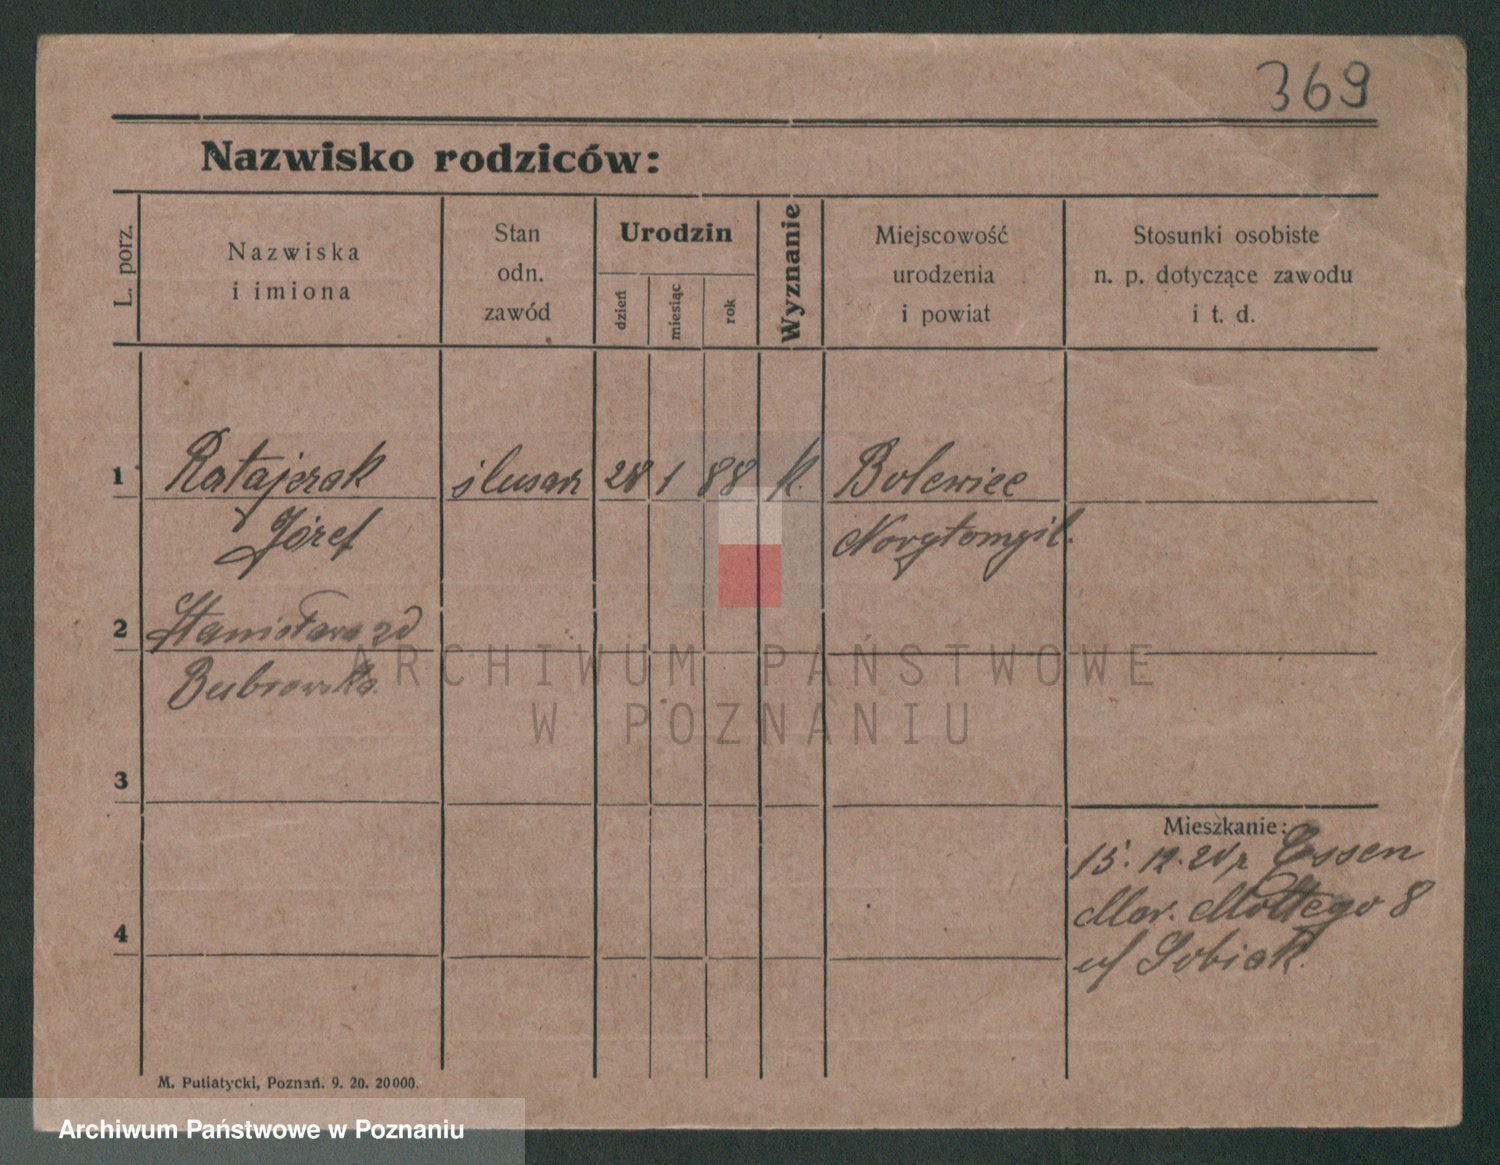 369
Nazwisko rodziców:
L. porz.
Nazwiska
i imiona
Stan
odn.
zawód
Urodzin
dzień
miesiąc
rok
Wyznanie
Miejscowość
urodzenia
i powiat
Stosunki osobiste
n. p. dotyczące zawodu
i t. d.
1 Ratajczak ślusarz 28 1 88 k. Bolewice
Józef Nowytomyśl.
2 Stanisława zd
Bubrowska
3
4
Mieszkanie:
15. 12. 20 z Essen
Mar. Moltego 8
u/ Sobiak.
M. Putiatycki, Poznań. 9. 20. 20000.
ARCHIWUM PAŃSTWOWE
W POZNANIU
Archiwum Państwowe w Poznaniu